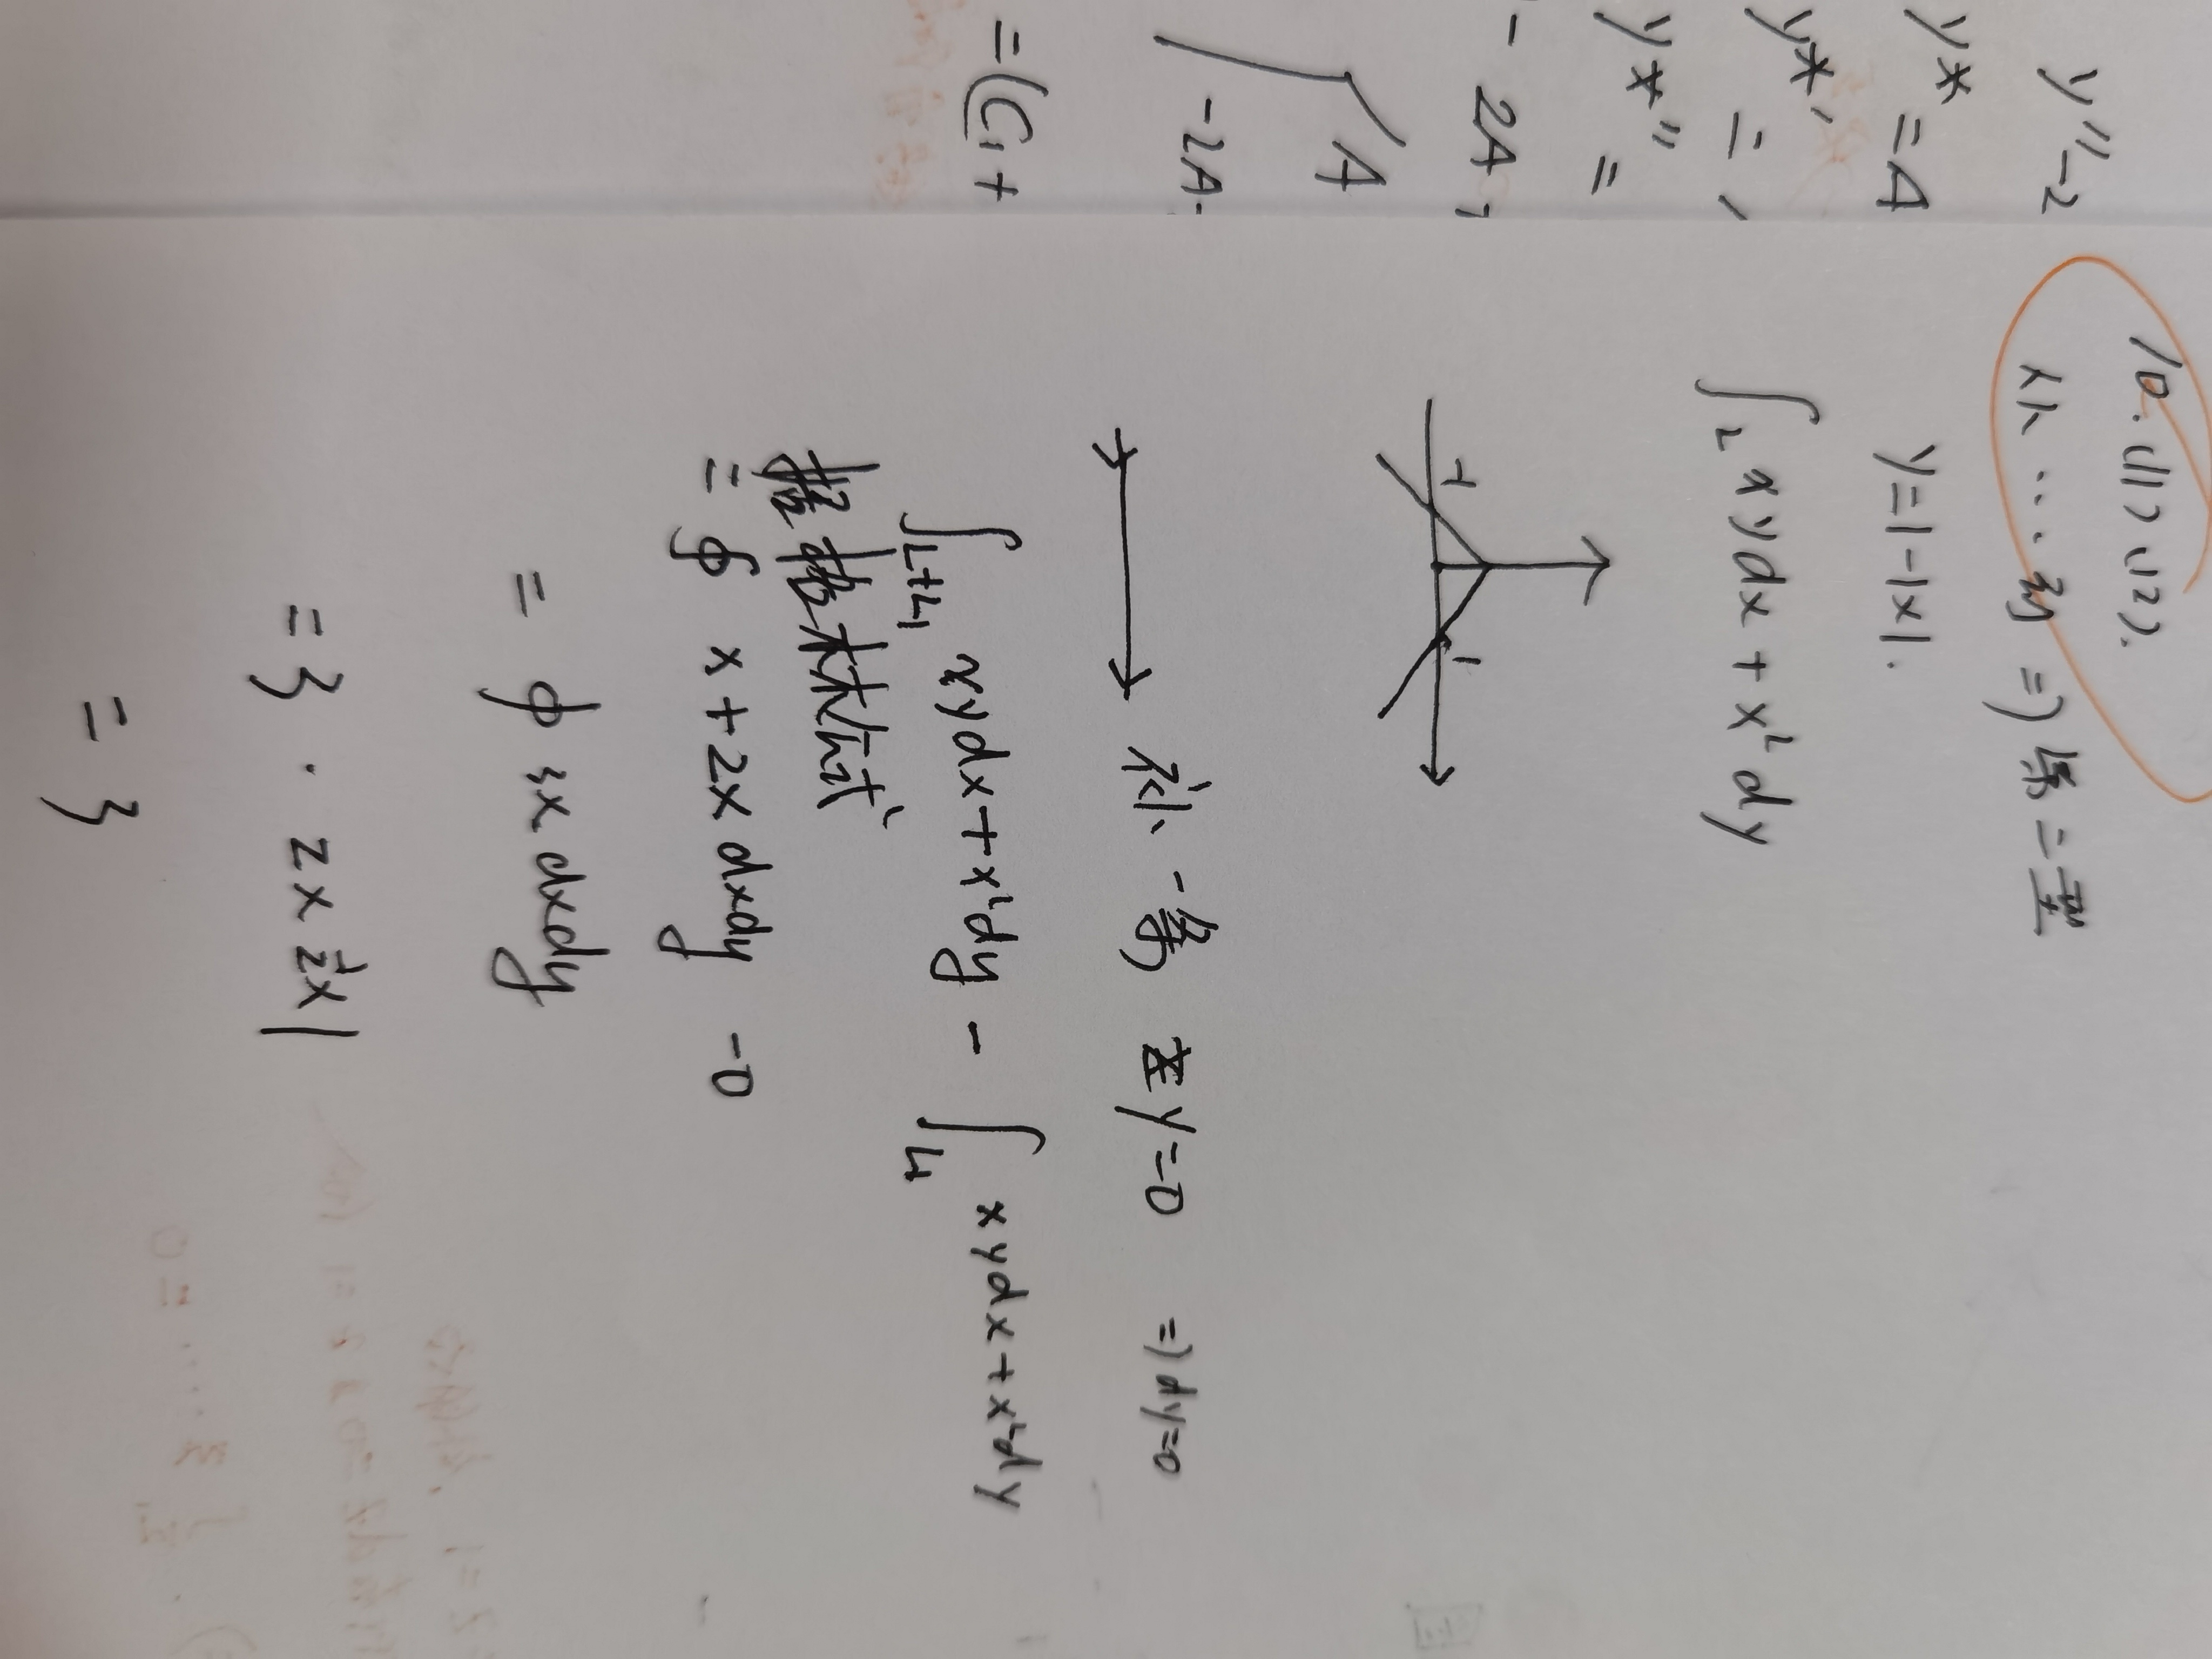 y''-2
y* = A
y*' =
y*'' =
- 2A
A
-2A
= (C1 +
10. (1) (12).
从…到 => 第二型
y=1-|x|.
∫L xydx + x²dy
-1 1
补一条 在y=0 => dy=0
∫L+L1 xydx+x²dy - ∫L1 xydx+x²dy
格林公式
= ∮ x+2x dxdy -0
= ∮ 3x dxdy
= 3 · 2x ½x|
= 3